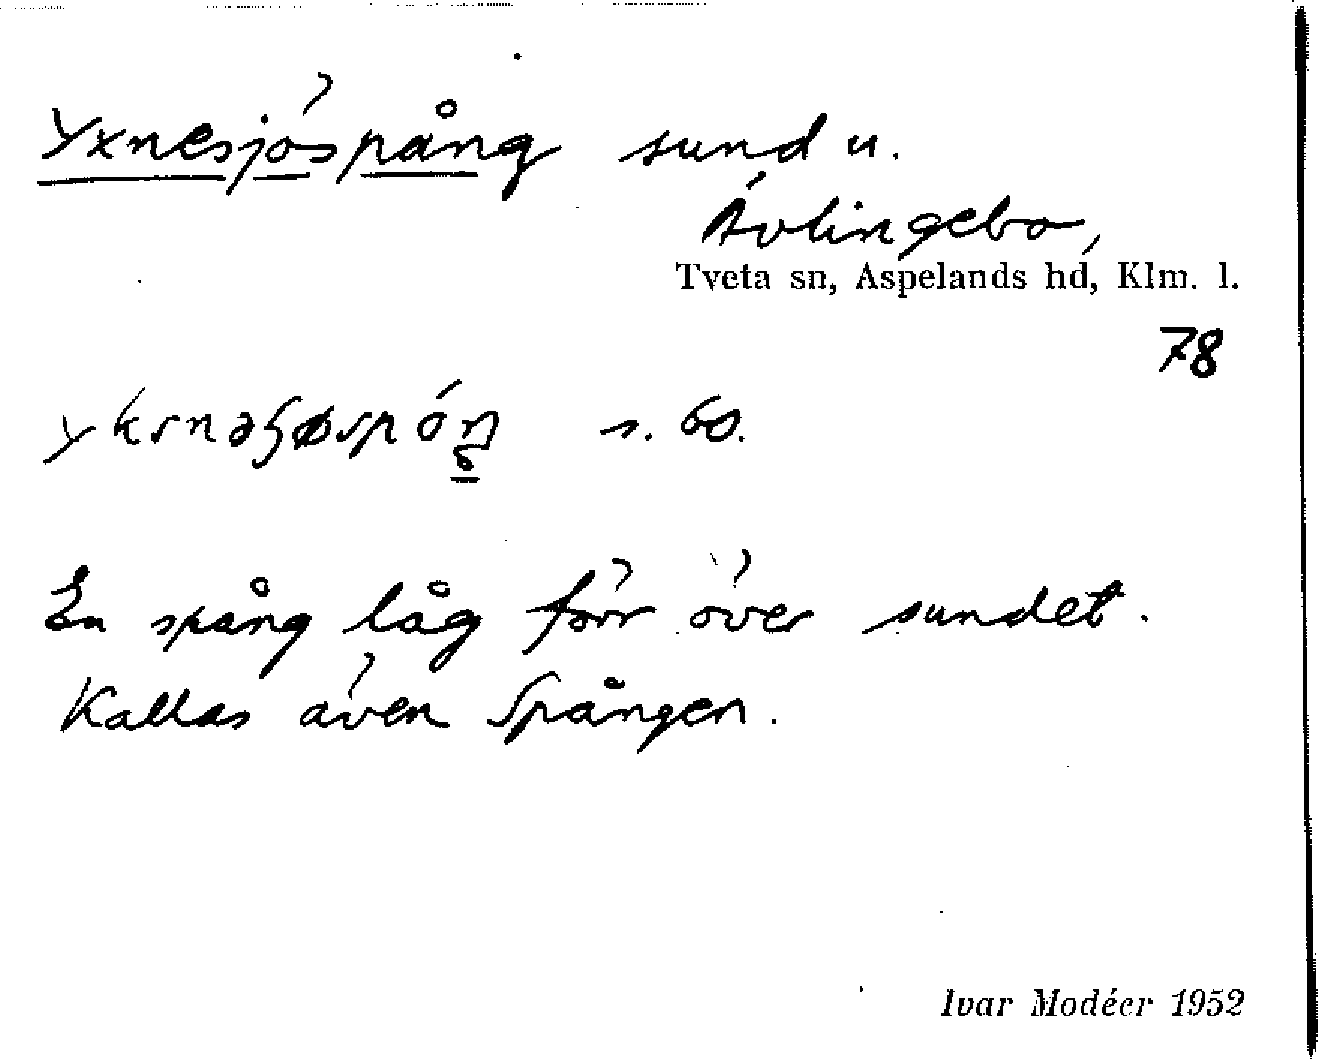 Yxnesjöspång sund u.
Ävlingebo,
Tveta sn, Aspelands hd, Klm. l.
78
s. bo.
En spång låg förr över sundet.
Kallas även Spången.
Ivar Modéer 1952